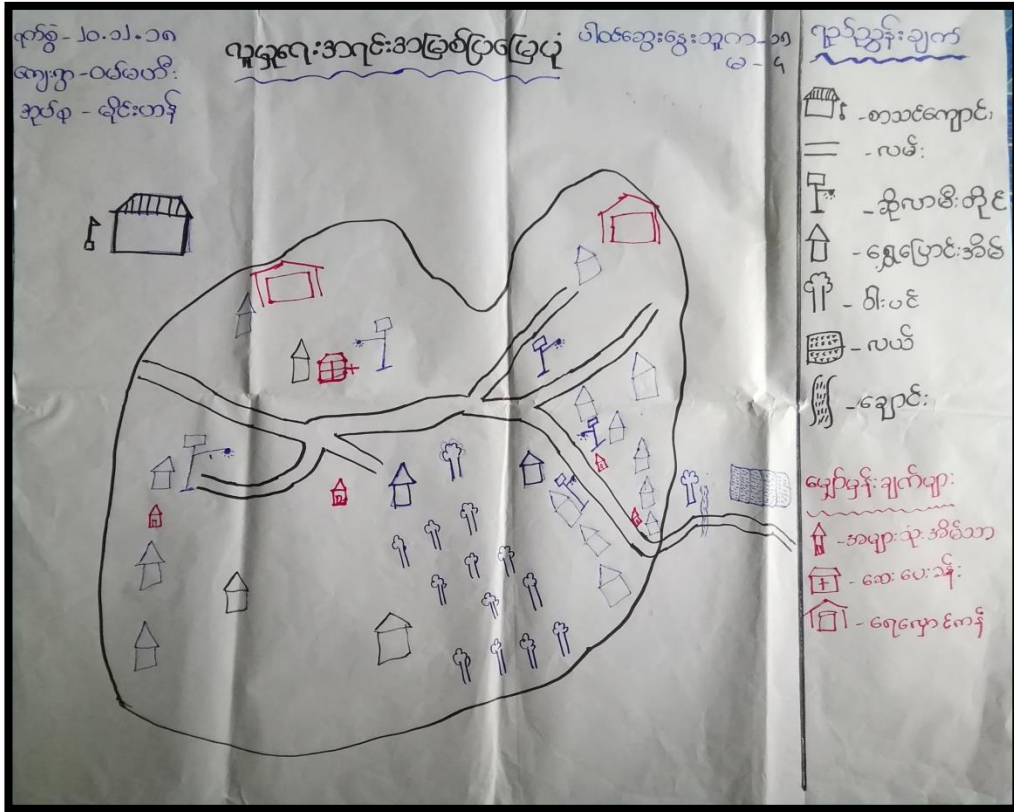 ရက်စွဲ - ၂၀.၁၂.၁၈
ကျေးရွာ - ဝမ်မတီး
အုပ်စု - မိုင်းဟန်
လူမှုရေးအရင်းအမြစ်ပြမြေပုံ
ပါဝင်ဆွေးနွေးသူ ကျ - ၁၅
မ - ၄
ရည်ညွှန်းချက်
- စာသင်ကျောင်း
- လမ်း
- ဆိုလာမီးတိုင်
- ရွှေ့ပြောင်းအိမ်
- ဝါးပင်
- လယ်
- ချောင်း
မျှော်မှန်းချက်များ
- အများသုံးအိမ်သာ
- ဆေးပေးခန်း
- ရေလှောင်ကန်